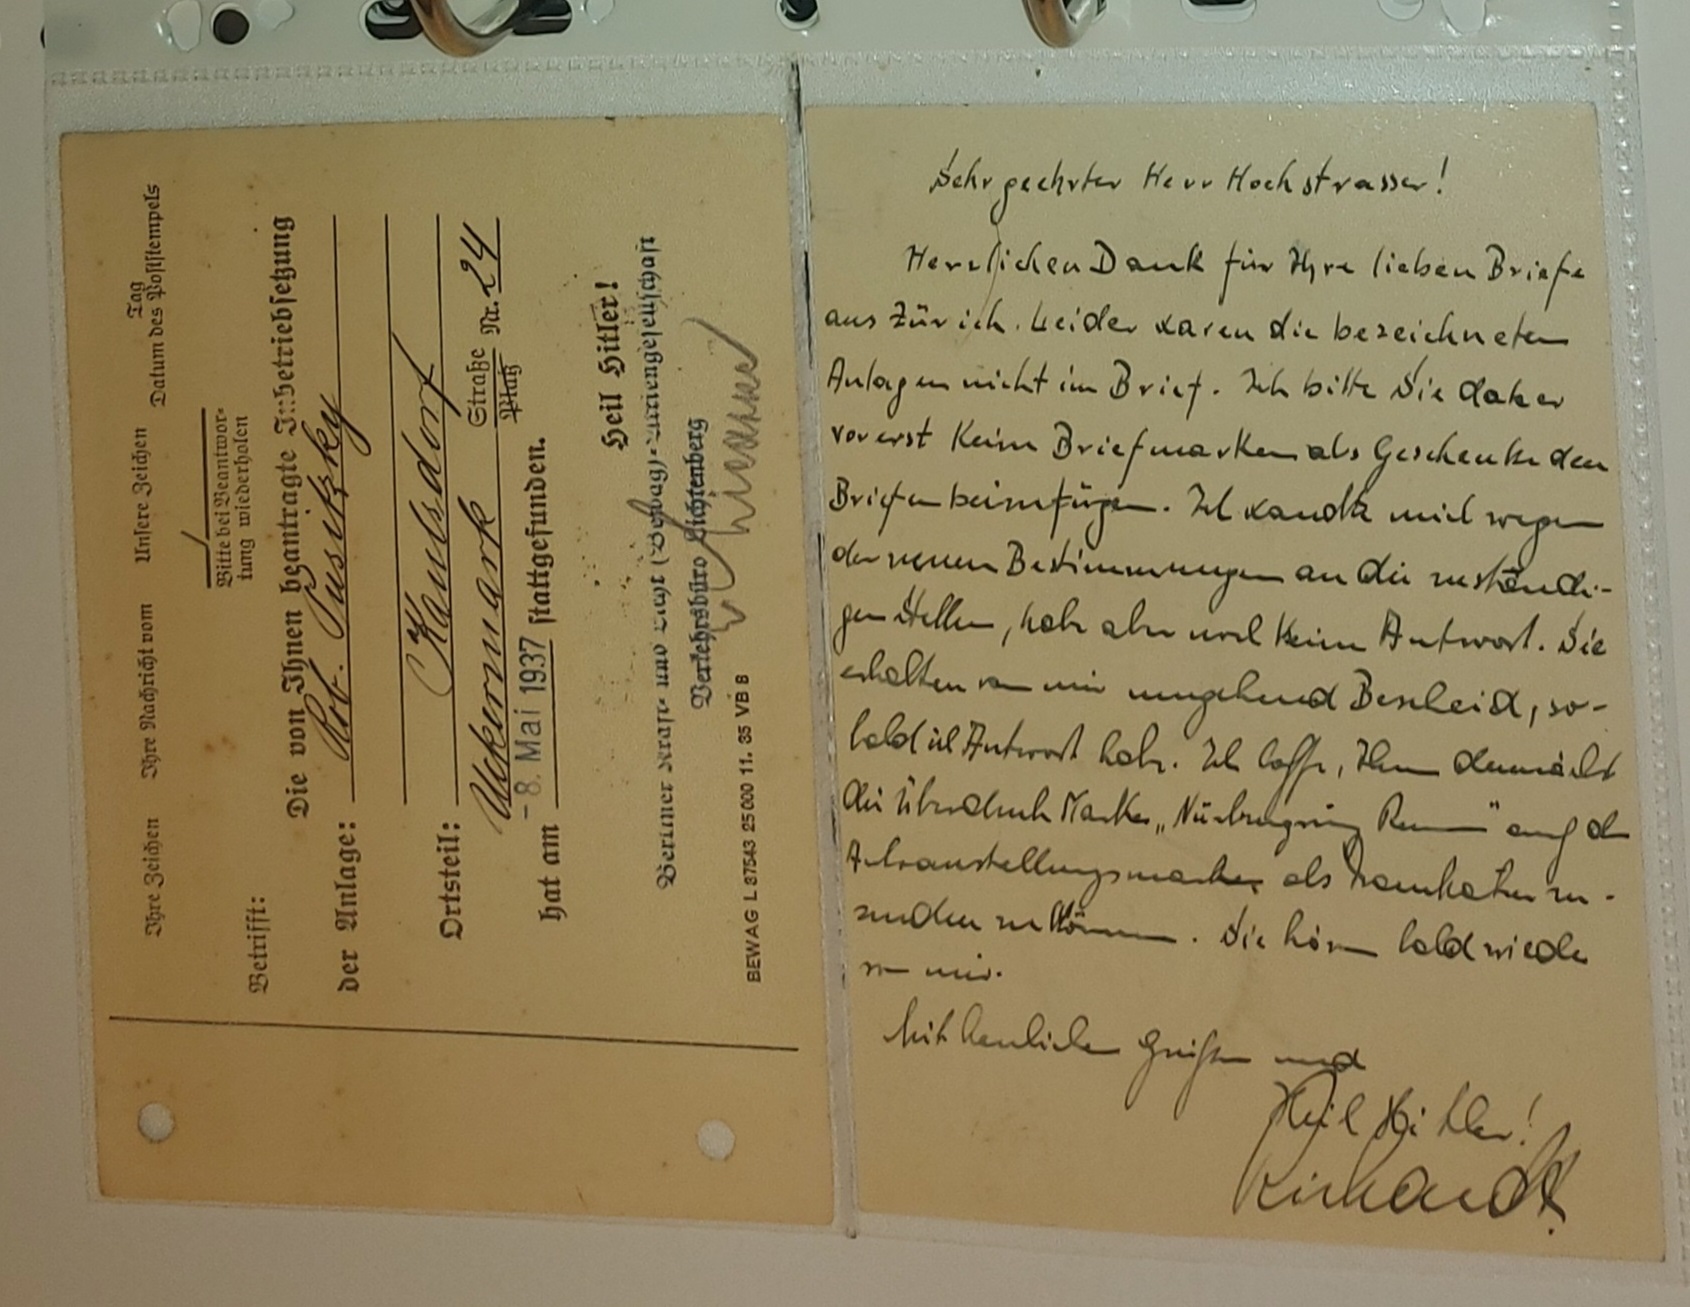 Ihre Zeichen Ihre Nachricht vom Unsere Zeichen Tag
Datum des Poststempels
Bitte bei Beantwor-
tung wiederholen
Betrifft:
Die von Ihnen beantragte Inbetriebsetzung
der Anlage: Rob. Pusitzky
Ortsteil: Kaulsdorf
Uckermark Straße Platz Nr. 24
hat am -8. Mai 1937 stattgefunden.
Heil Hitler!
Berliner Kraft- und Licht (Bewag)-Aktiengesellschaft
Verkehrsbüro Lichtenberg
BEWAG L 87543 25000 11. 35 VB 8
Sehr geehrter Herr Hochstrasser!
Herzlichen Dank für Ihre lieben Briefe
aus Zürich. Leider waren die bezeichneten
Anlagen nicht im Brief. Ich bitte Sie daher
vorerst keine Briefmarken als Geschenke den
Briefen beizufügen. Ich wandte mich wegen
der neuen Bestimmungen an die zuständi-
gen Stellen, habe aber noch keine Antwort. Sie
erhalten von mir umgehend Bescheid, so-
bald ich Antwort habe. Ich hoffe, Ihnen demnächst
die Überdruck Marke „Nürburgring Rennen" auf der
Autoausstellungsmarke als
senden zu können. Sie hören bald wieder
von mir.
Mit herzlichen Grüßen und
Heil Hitler!